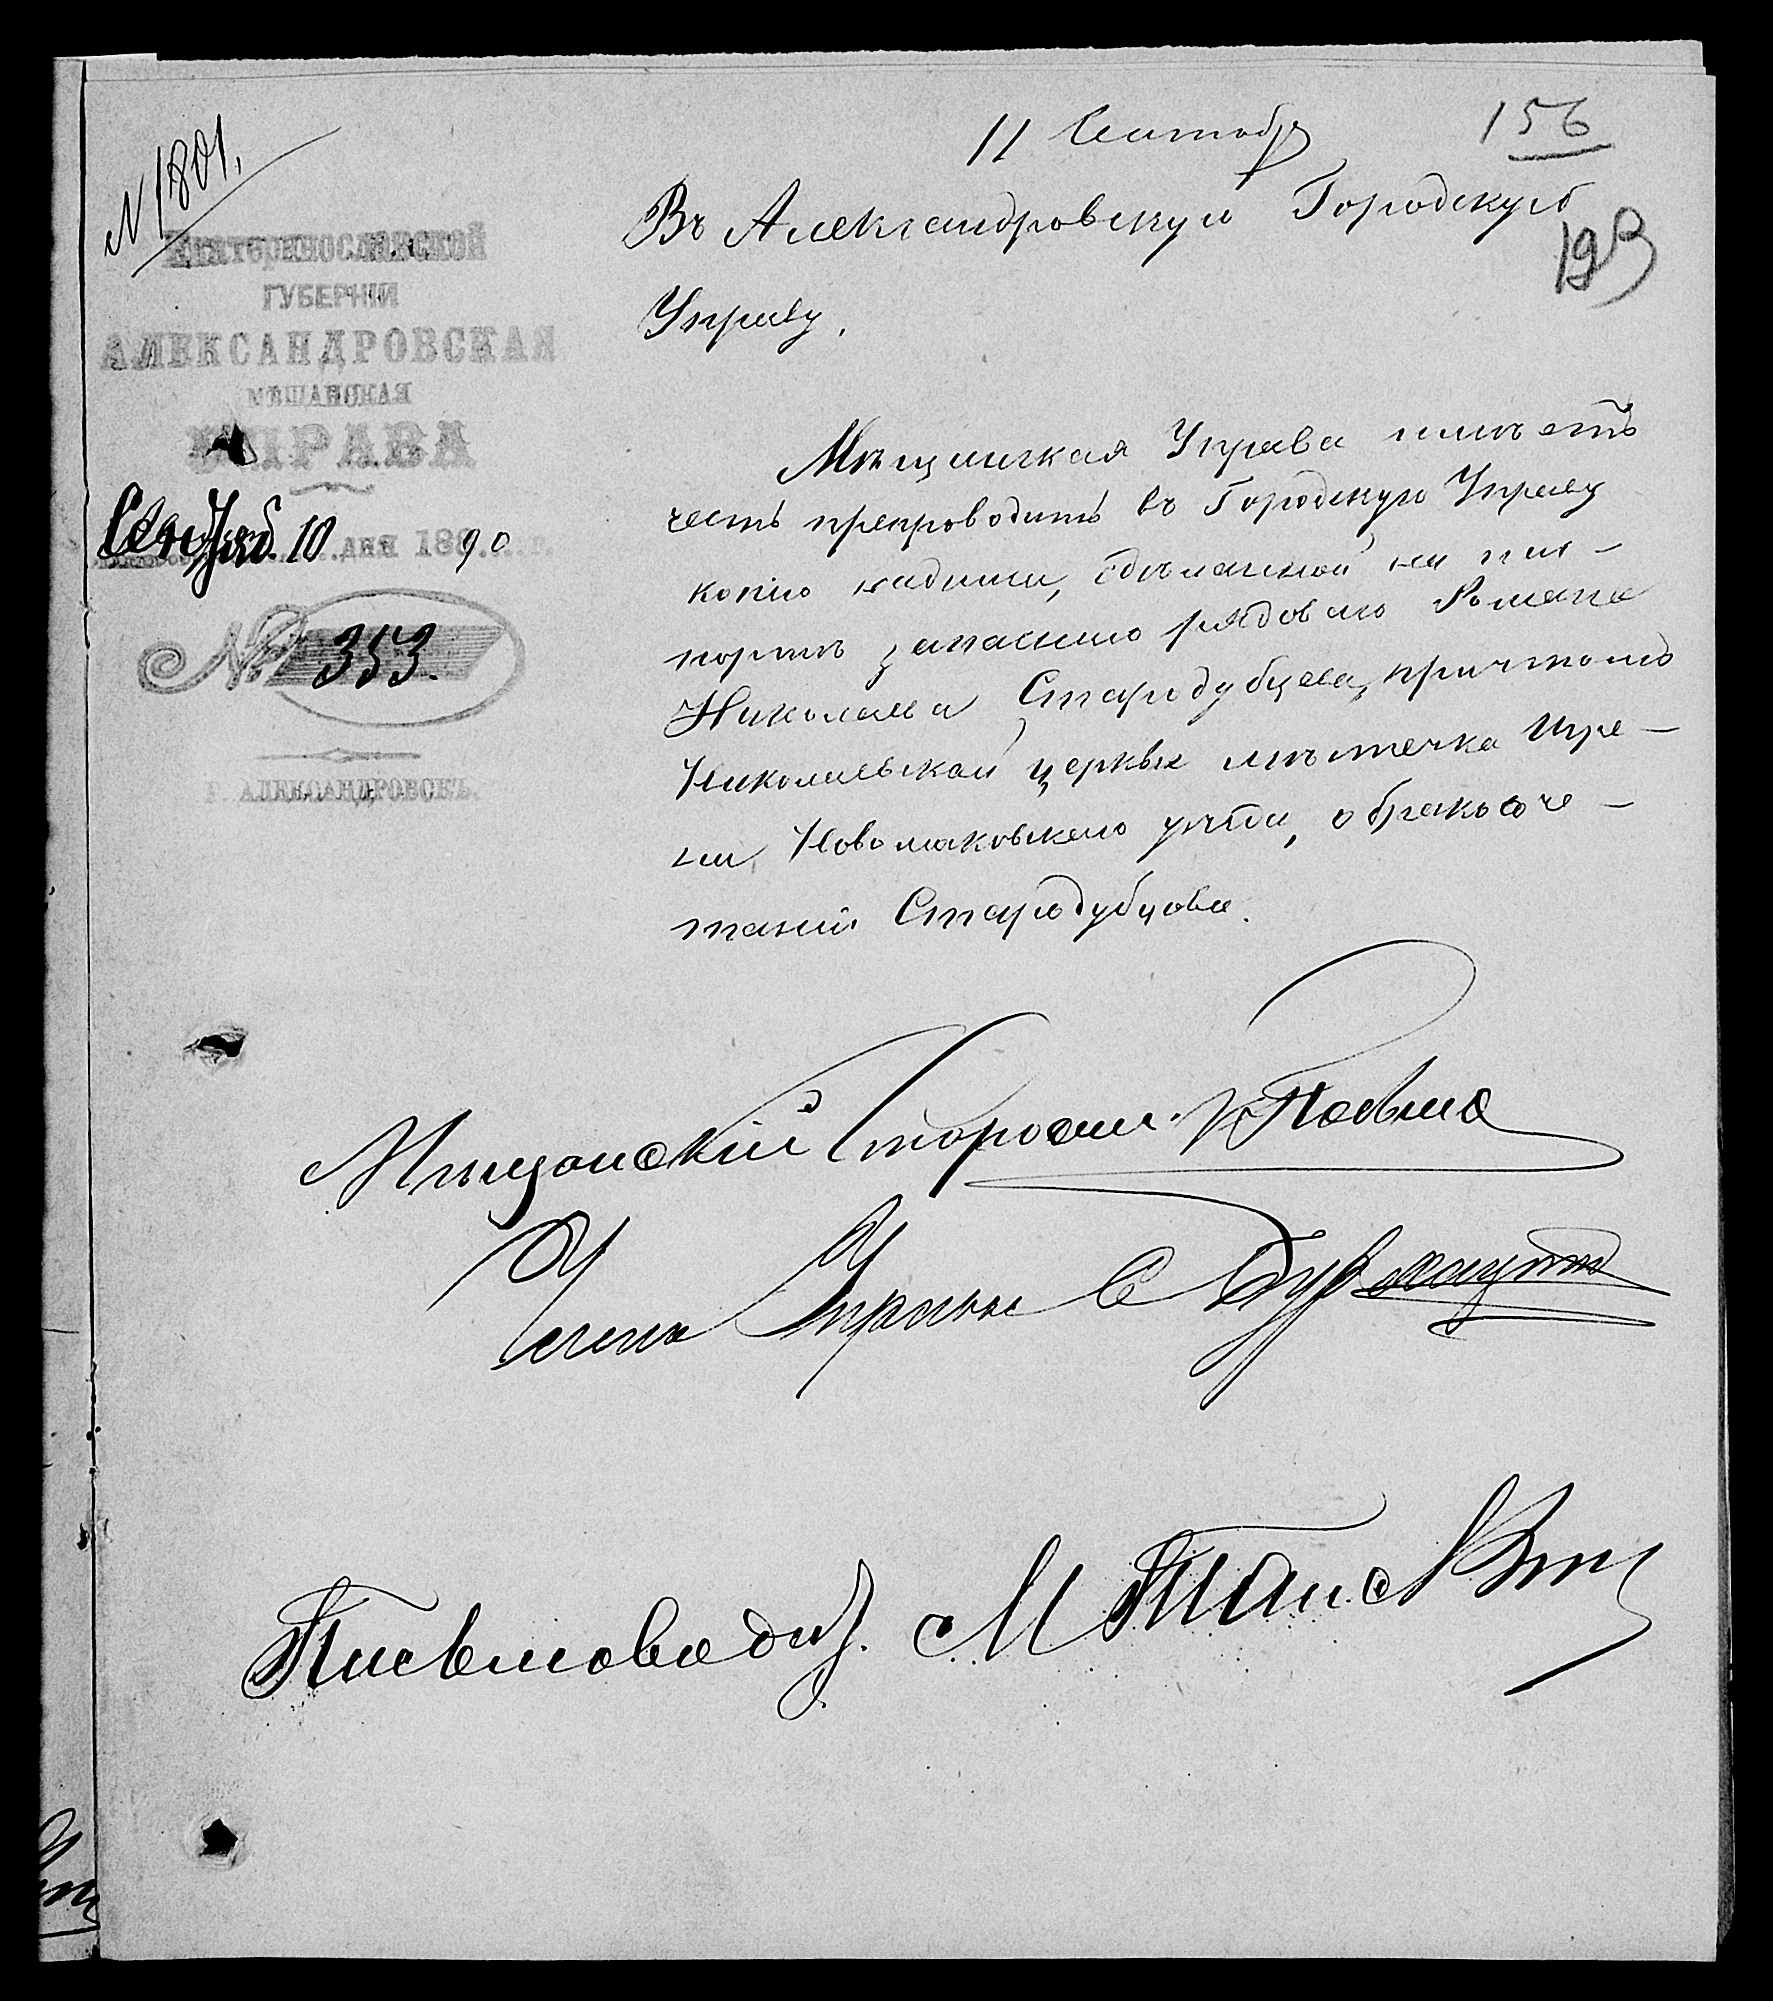 N 1801.
11 Сентябр
156
193
Екатеринославской
ГУБЕРНІИ
АЛЕКСАНДРОВСКАЯ
МѢЩАНСКАЯ
УПРАВА
Сентяб. 10 дня 1890 г.
№ 353.
Г. АЛЕКСАНДРОВСКЪ.
Въ Александровскую Городскую
Управу.
Мѣщанская Управа имѣетъ
честь препроводить въ Городскую Управу
копію надписи, сдѣланной на пас-
портѣ запаснаго рядоваго Романа
Николаева Стародубцева, причтомъ
Николаевской церкви мѣстечка
Новомосковскаго уѣзда, о бракосоче-
таніи Стародубцова.
Мѣщанскій Старости
Членъ Управы С
Письмоводит. М